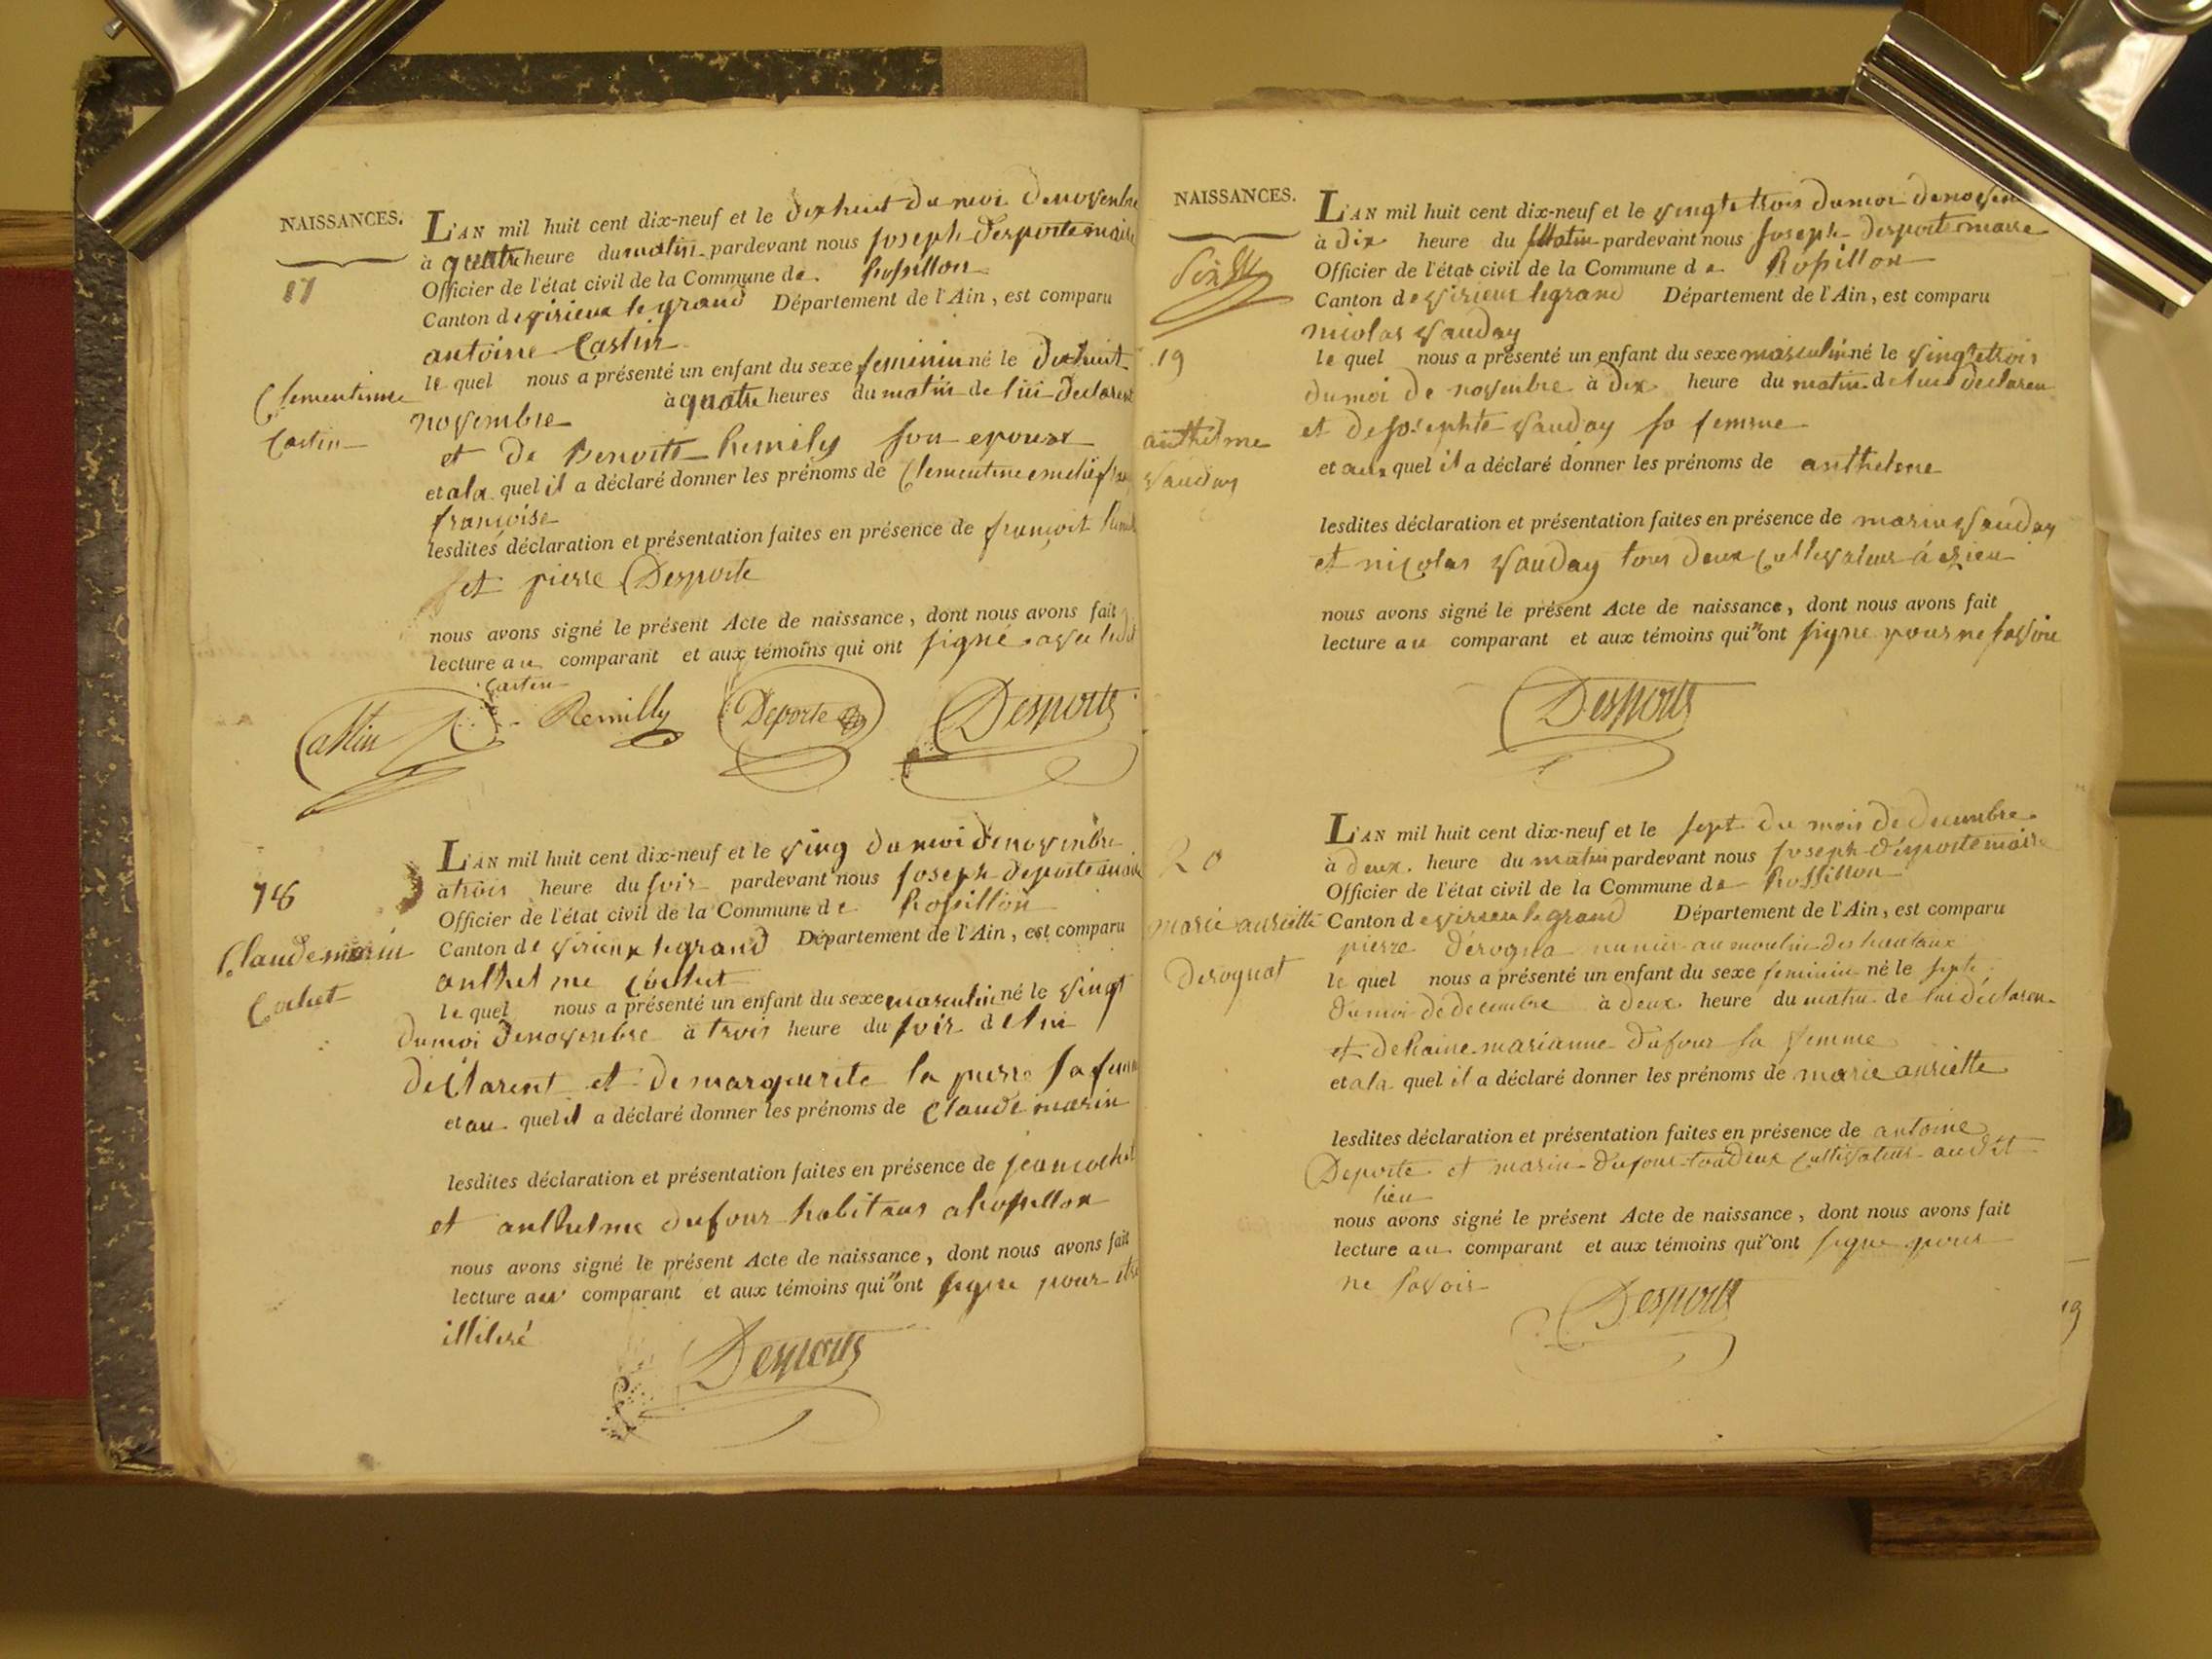 NAISSANCES.
17
Clementinne
Castin
L'AN mil huit cent dix-neuf et le dixhuit du moi denovembre
à quatre heure du matin pardevant nous joseph desporte maire
Officier de l'état civil de la Commune de Rossillon
Canton de virieux le grand Département de l'Ain, est comparu
antoine Castin
le quel nous a présenté un enfant du sexe feminin né le dixhuit
novembre à quatre heures du matin de lui declarent
et de Benoitte Remily son epouse
et a la quel il a déclaré donner les prénoms de Clementine emelie
françoise
lesdites déclaration et présentation faites en présence de françoit
et pierre Desporte
nous avons signé le présent Acte de naissance, dont nous avons fait
lecture au comparant et aux témoins qui ont signé avec
Castin
Castin Remilly Deporte Desporte
78
Claude marin
Cochet
L'AN mil huit cent dix-neuf et le ving du moi denovembre
à trois heure du soir pardevant nous joseph deporte maire
Officier de l'état civil de la Commune de Rossillon
Canton de virieux legrand Département de l'Ain, est comparu
anthelme Cochet
le quel nous a présenté un enfant du sexe masculin né le vingt
du moi denovembre à trois heure du soir de lui
déclarent et de marguerite la pierre sa femme
et au quel il a déclaré donner les prénoms de Claude marin
lesdites déclaration et présentation faites en présence de jean cochet
et anthelme dufour habitans a Rossillon
nous avons signé le présent Acte de naissance, dont nous avons fait
lecture au comparant et aux témoins qui n ont signe pour être
illiteré
Desporte
NAISSANCES.
19
anthelme
vauday
L'AN mil huit cent dix-neuf et le vingtetrois du moi denovem
à dix heure du matin pardevant nous joseph desporte maire
Officier de l'état civil de la Commune de Rossillon
Canton de virieux legrand Département de l'Ain, est comparu
nicolas vauday
le quel nous a présenté un enfant du sexe masculin né le vingtetrois
du moi de novembre à dix heure du matin de lui declaren
et de josephte vauday sa femme
et au quel il a déclaré donner les prénoms de anthelme
lesdites déclaration et présentation faites en présence de marin vauday
et nicolas vauday tous deux cultivateur à
nous avons signé le présent Acte de naissance, dont nous avons fait
lecture au comparant et aux témoins qui n ont signe pour ne savoire
Desporte
20
marie auriette
Derognat
L'AN mil huit cent dix-neuf et le sept du mois de decembre
à deux heure du matin pardevant nous joseph desporte maire
Officier de l'état civil de la Commune de Rossillon
Canton de virieu le grand Département de l'Ain, est comparu
pierre dérogna munier au moulin des hautaux
le quel nous a présenté un enfant du sexe feminin né le sept
du moi de decembre à deux heure du matin de lui déclaren
et de Raine marianne dufour sa femme
et a la quel il a déclaré donner les prénoms de marie auriette
lesdites déclaration et présentation faites en présence de antoine
Deporte et marin dufour toudeux cultivateur audit
lieu
nous avons signé le présent Acte de naissance, dont nous avons fait
lecture au comparant et aux témoins qui n ont signe pour
ne savoir
Desporte
19